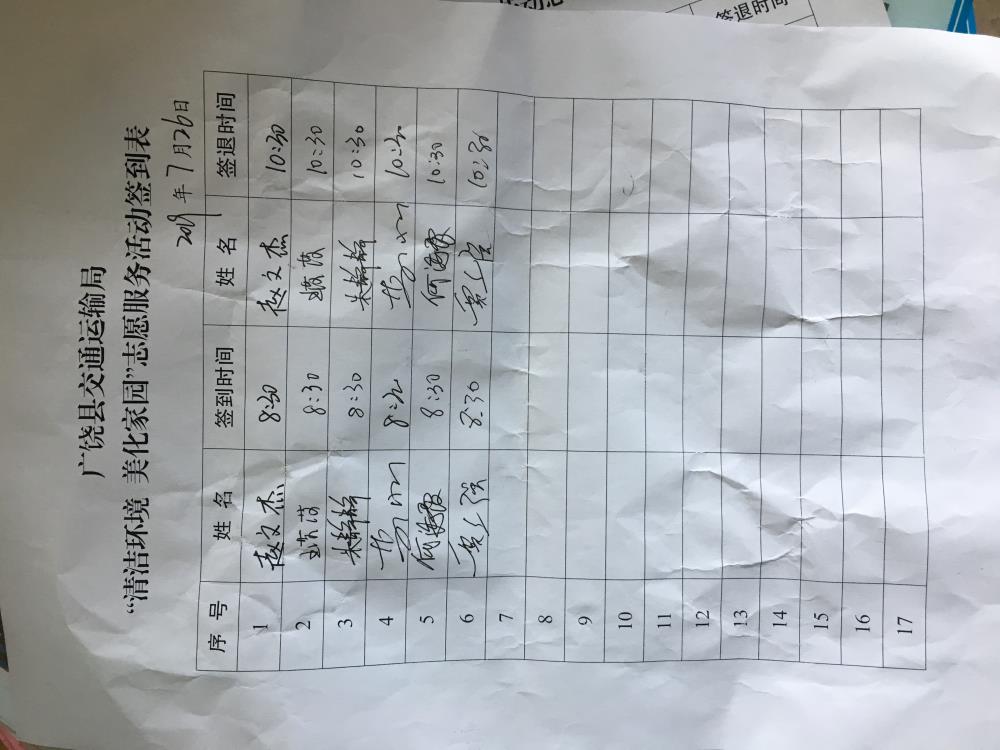 签退时间
广饶县交通运输局
“清洁环境 美化家园”志愿服务活动签到表
2019年7月26日
序号 姓名 签到时间 姓名 签退时间
1 赵文杰 8:30 赵文杰 10:30
2 8:30 10:30
3 8:30 10:30
4 8:30 10:30
5 何海霞 8:30 何海霞 10:30
6 8:30 10:30
7
8
9
10
11
12
13
14
15
16
17